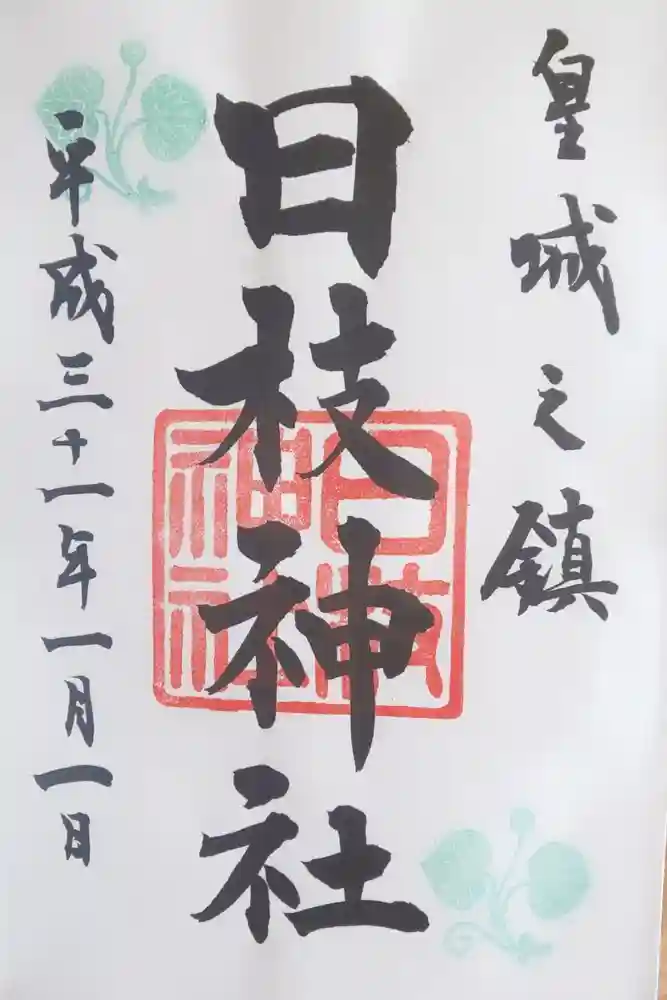 皇城之鎮
日枝神社
日枝神社
平成三十一年一月一日